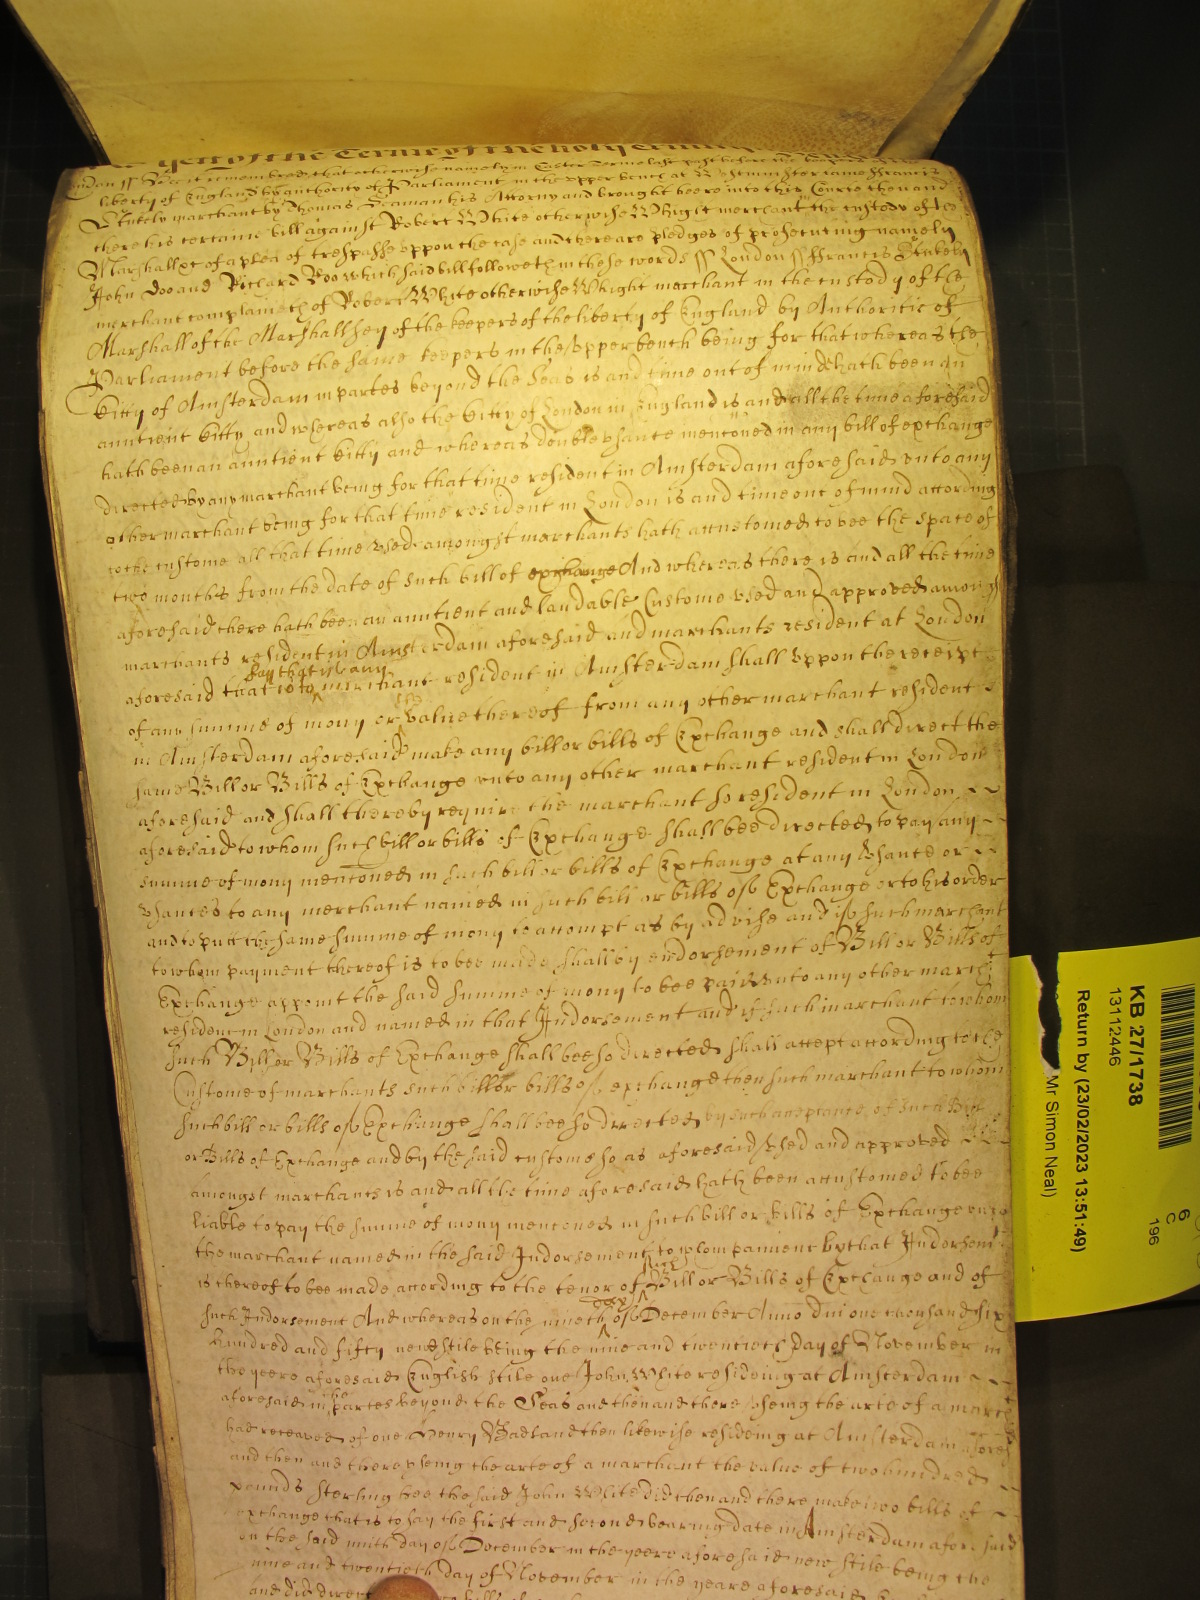 yett of the Terme of the holy
London ss Bee it remembred that otherwise namely in Easter Terme last past before the keepers of the
liberty of England by authority of Parliament in the upper bench at Westminster came Ffrancis
Stukely merchant by Thomas Seaman his Attorny and brought heere into this Courte then and
there his certaine bill against Robert White otherwise Whight merchant in the custody of the
Marshall &c of a plea of trespasse uppon the case and there are pledges of prosecuting namely
John Doo and Richard Roo which said bill followeth in these words ss London ss Ffrancis Stukely
merchant complaineth of Robert White otherwise Whight merchant in the custody of the
Marshall of the Marshallsey of the keepers of the liberty of England by Authoritie of
Parliament before the same keepers in the upper bench being for that whereas the
Citty of Amsterdam in partes beyond the Seas is and time out of minde hath been an
auntient Citty and whereas also the Citty of London in England is and all the time aforesaid
hath been an auntient Citty and whereas double usance mentoned in any bill of exchange
directed by any marchant being for that time resident in Amsterdam aforesaid unto any
other marchant being for that time resident in London is and time out of mind according
to the custome all that time used amongst merchants hath accustomed to bee the space of
two months from the date of such bill of exchange And whereas there is and all the time
aforesaid there hath been an auntient and laudable Custome used and approved among
marchants resident in Amsterdam aforesaid and marchants resident at London
aforesaid that is to say that if any marchant resident in Amsterdam shall uppon the receipt
of any summe of mony or the value thereof from any other marchant resident
in Amsterdam aforesaid make any bill or bills of Exchange and shall direct the
same Bill or Bills of Exchange unto any other marchant resident in London
aforesaid and shall thereby require the marchant so resident in London
aforesaid to whom such bill or bills of Exchange shall bee directed to pay any
summe of mony mentoned in such bill or bills of Exchange at any usance or
usances to any merchant named in such bill or bills of Exchange or to his order
and to putt the same summe of mony to accompt as by advise and if such marchant
to whom payment thereof is to bee made shall by endorsement of Bill or Bills of
Exchange appoint the said summe of mony to bee paid unto any other march
resident in London and named in that Indorsement and if such marchant to whom
such Bill or Bills of Exchange shall bee so directed shall accept according to the
Custome of marchants such bill or bills of exchange then such marchant to whom
such bill or bills of Exchange shall bee so directed by such acceptance of such Bill
or Bills of Exchange and by the said custome so as aforesaid used and approved
amongst marchants is and all the time aforesaid hath been accustomed to bee
liable to pay the summe of mony mentoned in such bill or bills of Exchange unto
the marchant named in the said Indorsement to whom paiment by that Indorsemt
is thereof to bee made according to the tenor of such Bill or Bills of Exchange and of
such Indorsement And whereas on the nineth day of December Anno dni one thousand six
hundred and fifty new stile being the nine and twentieth day of November in
the yeere aforesaid English stile one John White resideing at Amsterdam
aforesaid in the partes beyond the Seas and then and there useing the arte of a march
had receaved of one Henry Badland then likewise resideing at Amsterdam afores
and then and there useing the arte of a marchant the value of two hundred
pounds sterling hee the said John White did then and there make two bills of
exchange that is to say the first and second bearing date in Amsterdam aforesaid
on the said ninth day of December in the yeere aforesaid new stile being the
nine and twentieth day of November in the yeare aforesaid
and did direct
KB 27/1738
13112446
Return by (23/02/2023 13:51:49)
Mr Simon Neal)
6
C
196